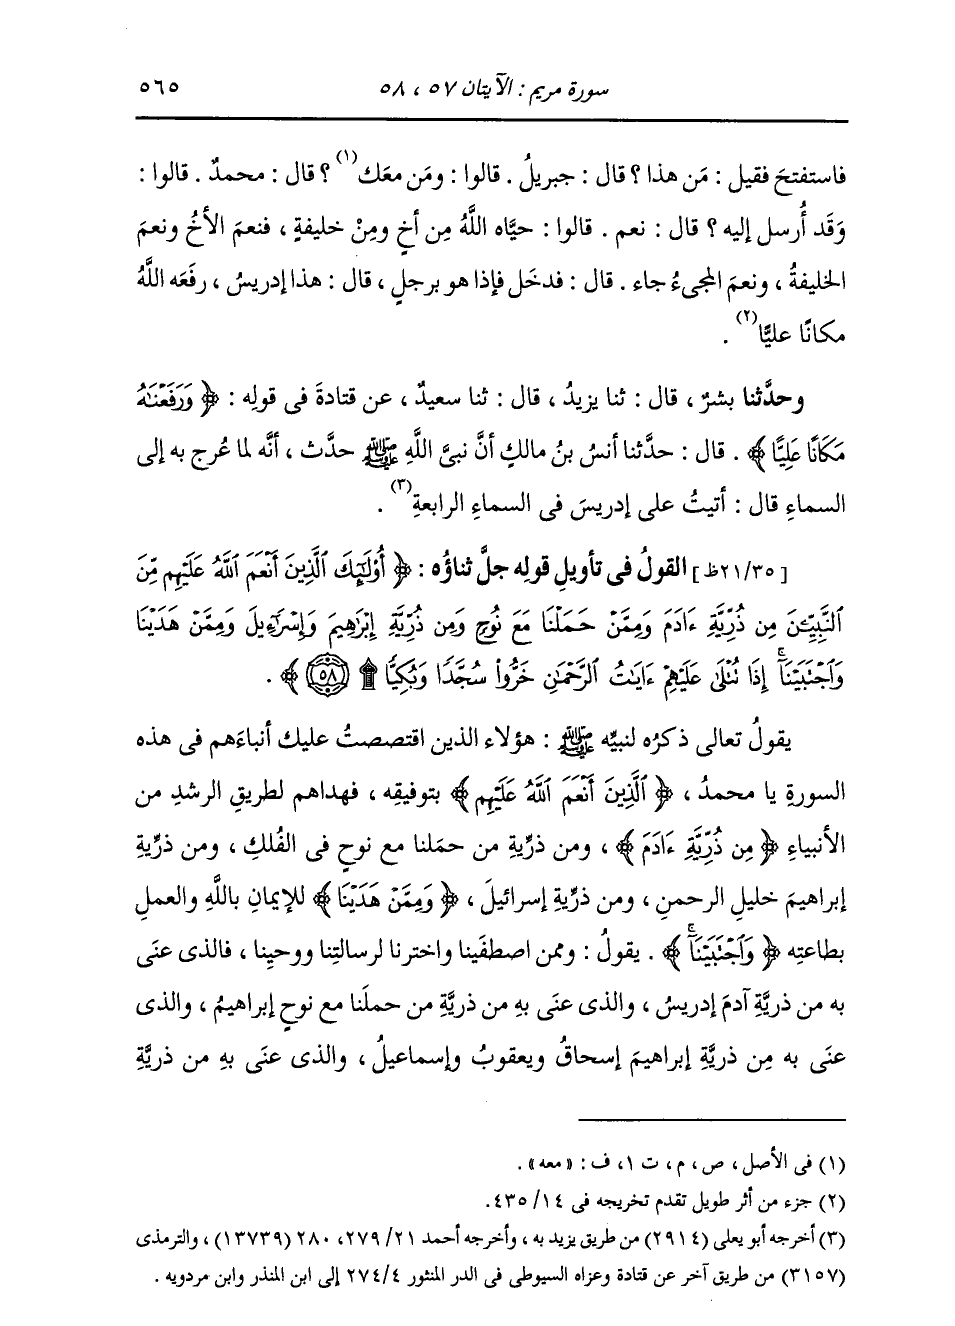 سورة مريم : الآيتان ٥٧ ، ٥٨
٥٦٥
فاستفتحَ فقيل : مَن هذا ؟ قال : جبريلُ . قالوا : ومَن معَك(١) ؟ قال : محمدٌ . قالوا :
وَقَد أُرسل إليه ؟ قال : نعم . قالوا : حيَّاه اللَّهُ مِن أخٍ ومِنْ خليفةٍ ، فنعمَ الأخُ ونعمَ
الخليفةُ ، ونعمَ المجىءُ جاء . قال : فدخَل فإذا هو برجلٍ ، قال : هذا إدريسُ ، رفَعَه اللَّهُ
مكانًا عليًّا(٢) .
وحدَّثنا بشرٌ ، قال : ثنا يزيدُ ، قال : ثنا سعيدٌ ، عن قتادةَ فى قولِه : ﴿ وَرَفَعْنَٰهُ
مَكَانًا عَلِيًّا ﴾ . قال : حدَّثنا أنسُ بنُ مالكٍ أنَّ نبىَّ اللَّهِ ﷺ حدَّث ، أنَّه لما عُرج به إلى
السماءِ قال : أتيتُ على إدريسَ فى السماءِ الرابعةِ(٣) .
[ ٢١/٣٥ظ ] القولُ فى تأويلِ قولِه جلَّ ثناؤُه : ﴿ أُوْلَٰٓئِكَ ٱلَّذِينَ أَنْعَمَ ٱللَّهُ عَلَيْهِم مِّنَ
ٱلنَّبِيِّۦنَ مِن ذُرِّيَّةِ ءَادَمَ وَمِمَّنْ حَمَلْنَا مَعَ نُوحٍ وَمِن ذُرِّيَّةِ إِبْرَٰهِيمَ وَإِسْرَٰٓءِيلَ وَمِمَّنْ هَدَيْنَا
وَٱجْتَبَيْنَآۚ إِذَا تُتْلَىٰ عَلَيْهِمْ ءَايَٰتُ ٱلرَّحْمَٰنِ خَرُّواْ سُجَّدًا وَبُكِيًّا ۩ ٥٨ ﴾ .
يقولُ تعالى ذكرُه لنبيِّه ﷺ : هؤلاء الذين اقتصصتُ عليك أنباءَهم فى هذه
السورةِ يا محمدُ ، ﴿ ٱلَّذِينَ أَنْعَمَ ٱللَّهُ عَلَيْهِم ﴾ بتوفيقِه ، فهداهم لطريقِ الرشدِ من
الأنبياءِ ﴿ مِن ذُرِّيَّةِ ءَادَمَ ﴾ ، ومن ذرِّيةِ من حمَلنا مع نوحٍ فى الفُلكِ ، ومن ذرِّيةِ
إبراهيمَ خليلِ الرحمنِ ، ومن ذرِّيةِ إسرائيلَ ، ﴿ وَمِمَّنْ هَدَيْنَا ﴾ للإيمانِ باللَّهِ والعملِ
بطاعتِه ﴿ وَٱجْتَبَيْنَآۚ ﴾ . يقولُ : وممن اصطفَينا واخترنا لرسالتِنا ووحيِنا ، فالذى عنَى
به من ذريَّةِ آدمَ إدريسُ ، والذى عنَى بِه من ذريَّةِ من حملَنا مع نوحٍ إبراهيمُ ، والذى
عنَى به مِن ذريَّةِ إبراهيمَ إسحاقُ ويعقوبُ وإسماعيلُ ، والذى عنَى بِهِ من ذريَّةِ
(١) فى الأصل ، ص ، م ، ت ١، ف : « معه » .
(٢) جزء من أثر طويل تقدم تخريجه فى ١٤/ ٤٣٥.
(٣) أخرجه أبو يعلى (٢٩١٤) من طريق يزيد به ، وأخرجه أحمد ٢١/ ٢٧٩، ٢٨٠ (١٣٧٣٩) ، والترمذى
(٣١٥٧) من طريق آخر عن قتادة وعزاه السيوطى فى الدر المنثور ٢٧٤/٤ إلى ابن المنذر وابن مردويه .